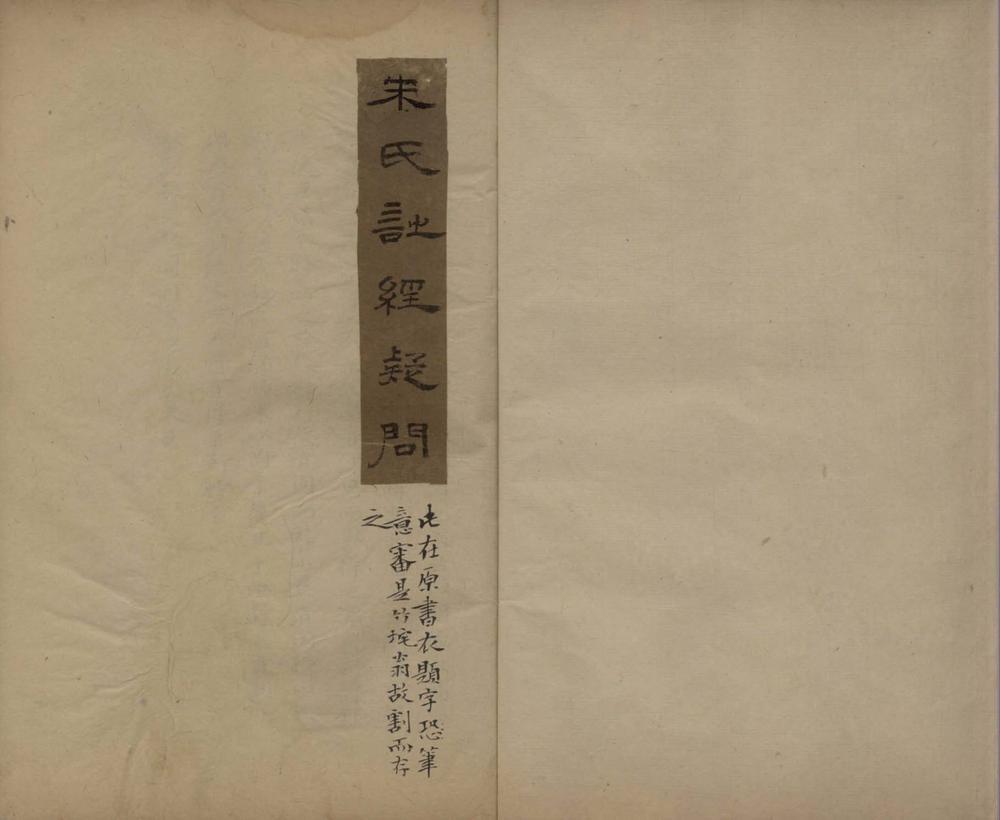 朱氏詩經疑問
此在原書衣題字恐筆
意審是竹垞翁故割而存
之